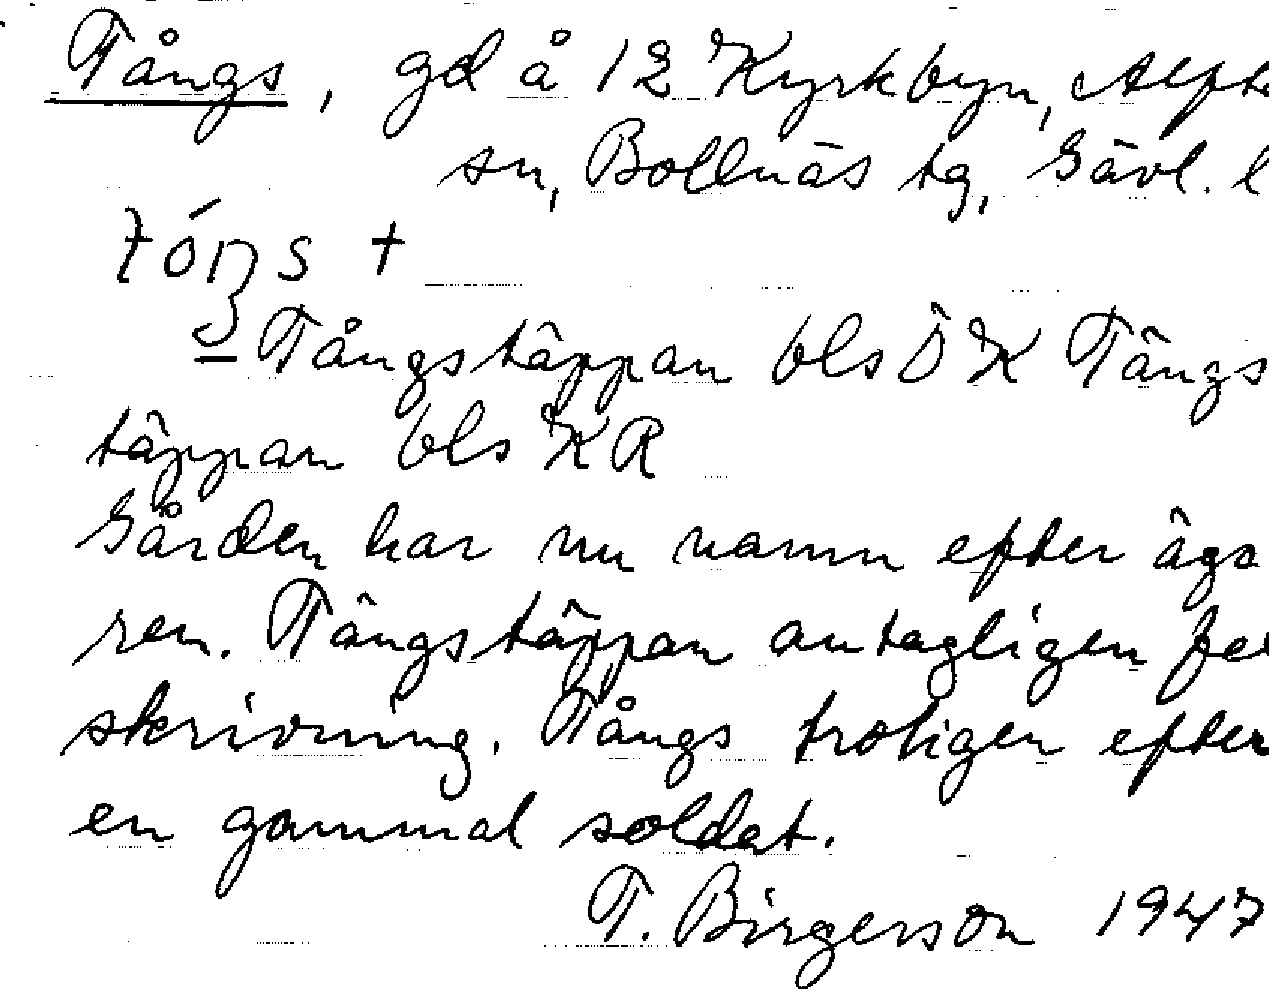 Tångs, gd å 12 Kyrkbyn, Alfta
sn, Bollnäs tg, Gävl. l
tóŋs +
= Tångstäppan bls Ö K Tängs
täppan bls KR
Gården har nu namn efter äga
ren. Tängstäppan antagligen fel
skrivning. Tångs troligen efter
en gammal soldat.
T. Birgerson 1947